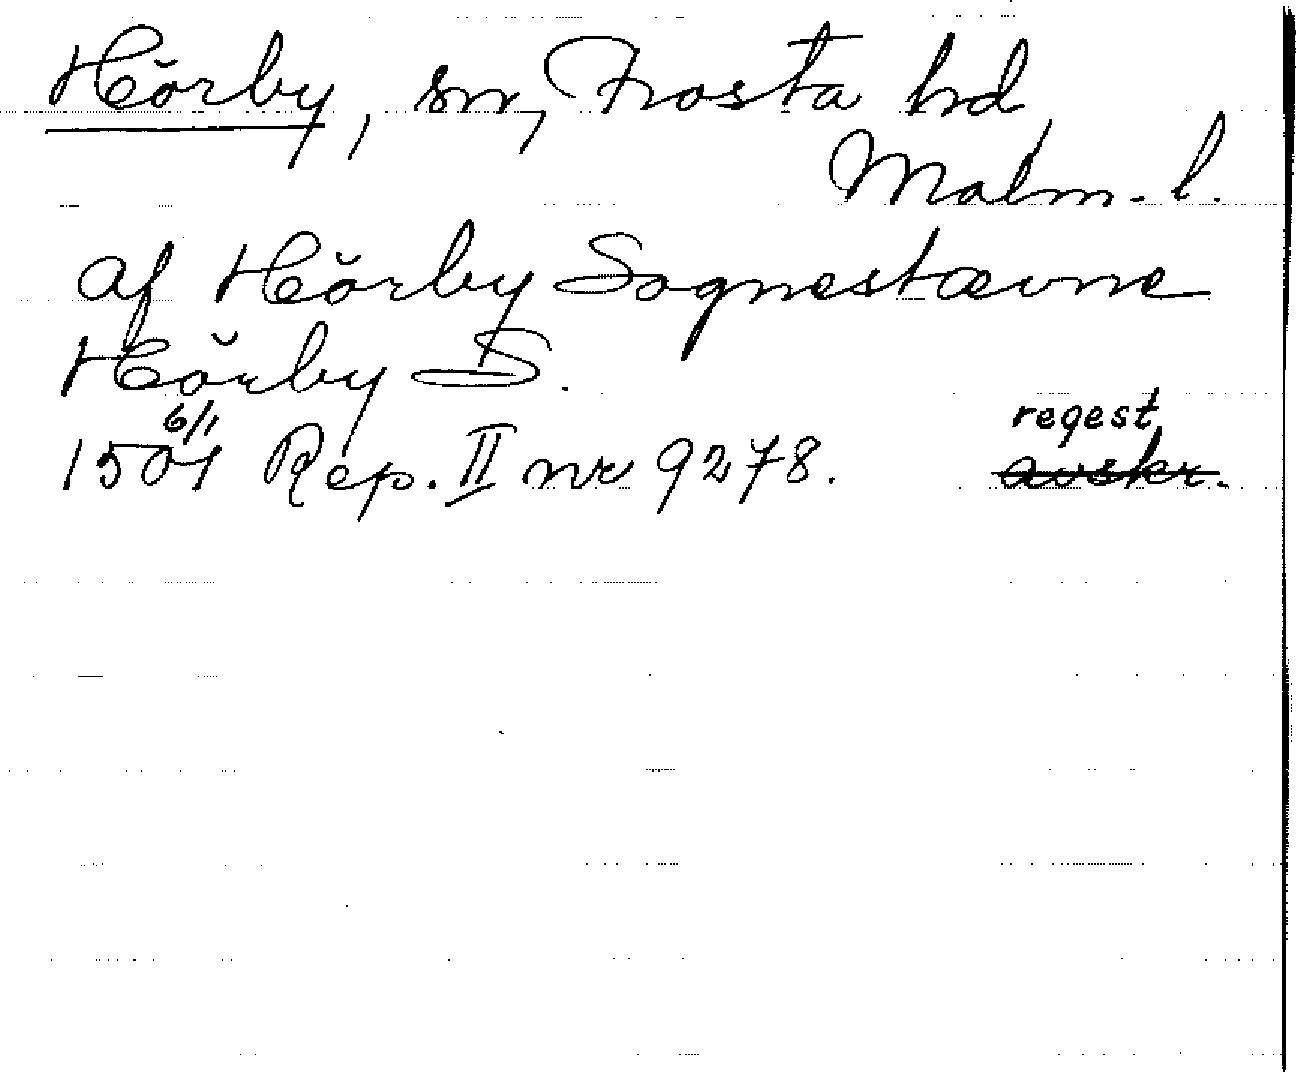 Hörby, sn, Frosta hd,
Malm. l.
af Hörby Sognestævne
Hörby S.
6/1 regest
1501 Rep. II nr 9278. avskr.